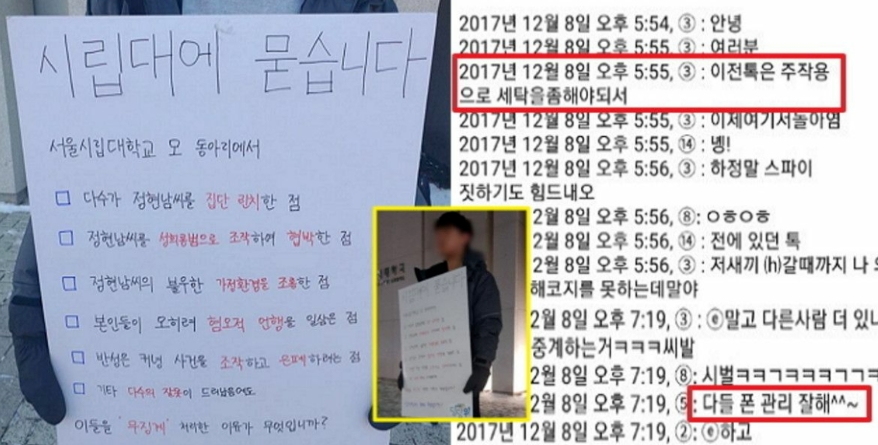 시립대에 묻습니다
서울시립대학교 모 동아리에서
다수가 정현남씨를 집단 린치한 점
정현남씨를 성희롱범으로 조작하여 협박한 점
정현남씨의 불우한 가정환경을 조롱한 점
본인들이 오히려 혐오적 언행을 일삼은 점
반성은 커녕 사건을 조작하고 은폐하려는 점
기타 다수의 잘못이 드러났음에도
이들을 '무징계' 처리한 이유가 무엇입니까?
2017년 12월 8일 오후 5:54, ③ : 안녕
2017년 12월 8일 오후 5:55, ③ : 여러분
2017년 12월 8일 오후 5:55, ③ : 이전톡은 주작용
으로 세탁을좀해야되서
2017년 12월 8일 오후 5:55, ③ : 이제여기서놀아염
2017년 12월 8일 오후 5:55, ⑭ : 벵!
2017년 12월 8일 오후 5:56, ③ : 하정말 스파이
짓하기도 힘드내오
2월 8일 오후 5:56, ⑧ : ㅇㅎㅇㅎ
2월 8일 오후 5:56, ⑭ : 전에 있던 톡
2월 8일 오후 5:56, ③ : 저새끼 (h)갈때까지 나
해코지를 못하는데말야
2월 8일 오후 7:19, ③ : ⓔ말고 다른사람 더 있
중계하는거ㅋㅋㅋ씨발
2월 8일 오후 7:19, ⑧ : 시벌ㅋㅋㄱㅋㅋㅋㄱㄱㅋ
2월 8일 오후 7:19, ⑤ : 다들 폰 관리 잘해^^~
2017년 12월 8일 오후 7:19, ② : ⓔ하고